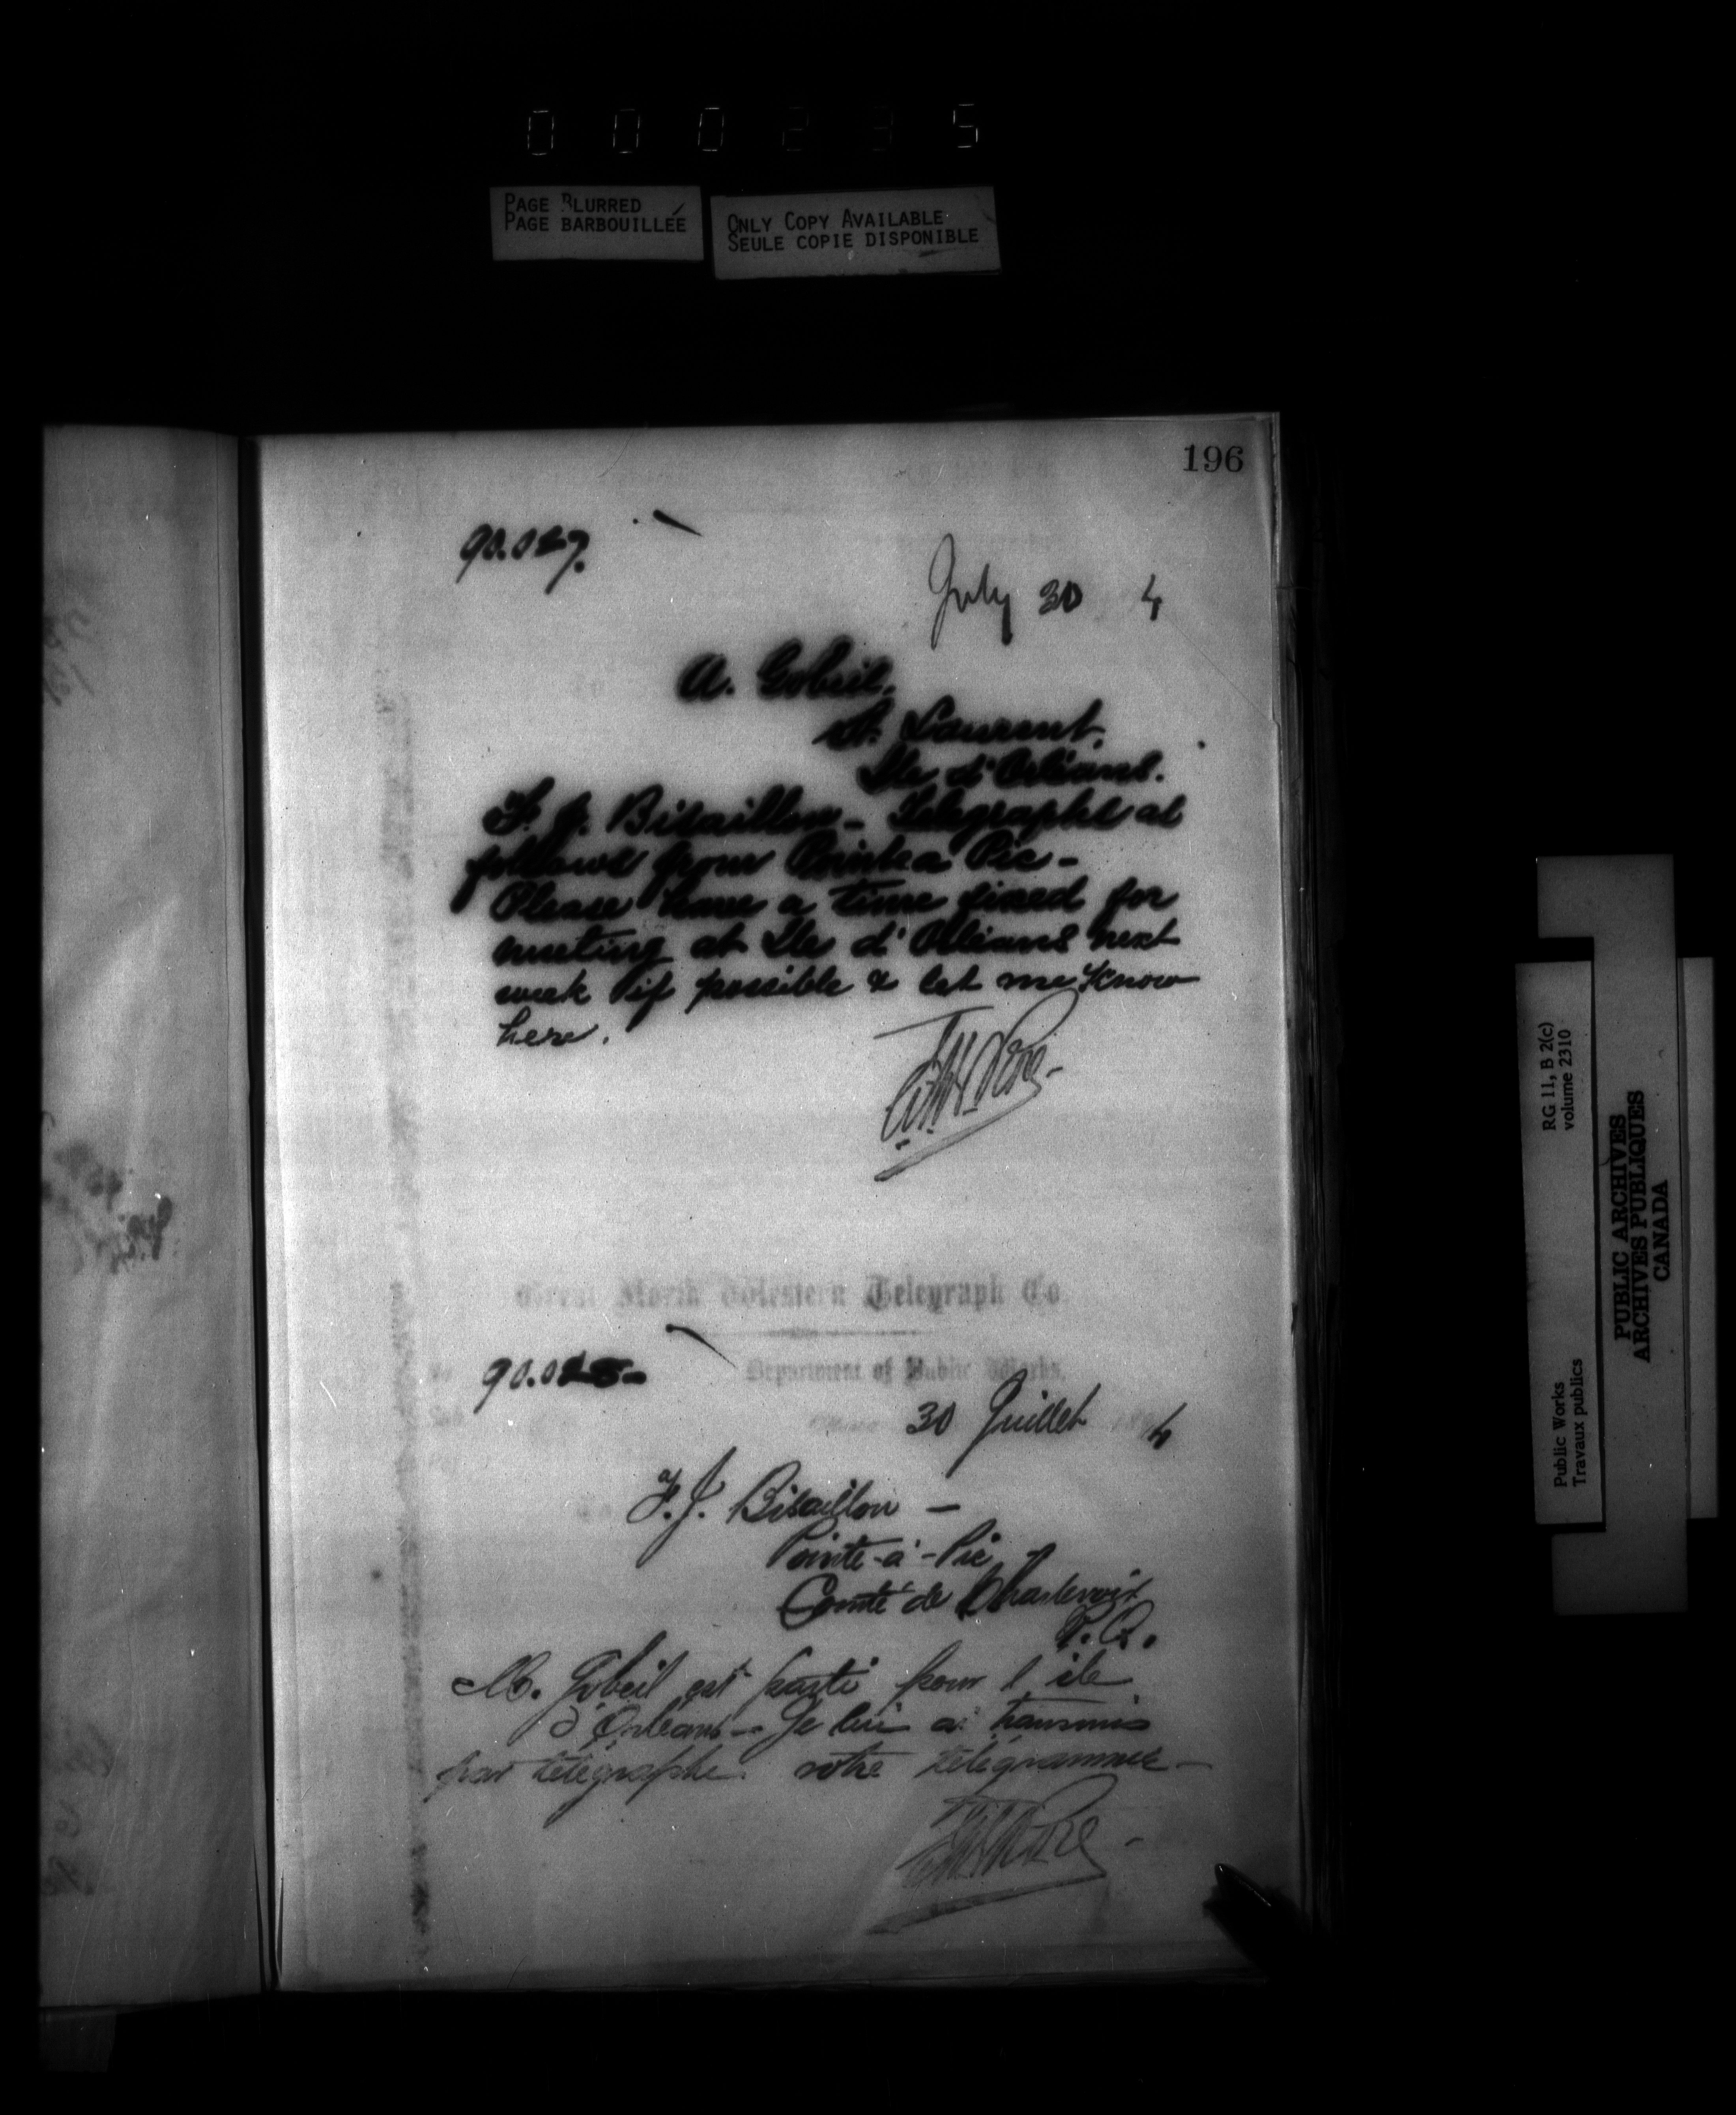 0 0 0 2 3 5
PAGE BLURRED
PAGE BARBOUILLÉE
ONLY COPY AVAILABLE
SEULE COPIE DISPONIBLE
196
July 30 4
A. Gobeil,
St. Laurent,
Ile d'Orléans.
F. J. Bisaillon - Telegraphs as
follows from Pointe a Pic -
Please have a time fixed for
meeting at Ile d'Orléans next
week if possible & let me know
here.
Great North Western Telegraph Co
Department of Public Works,
30 Juillet 4
F. J. Bisaillon -
Pointe-à-Pic -
Comté de Charlevoix
P.Q.
M. Gobeil est parti pour l'ile
d'Orléans - Je lui ai transmis
par télégraphe votre télégramme -
RG 11, B 2(c)
volume 2310
Public Works
Travaux publics
PUBLIC ARCHIVES
ARCHIVES PUBLIQUES
CANADA